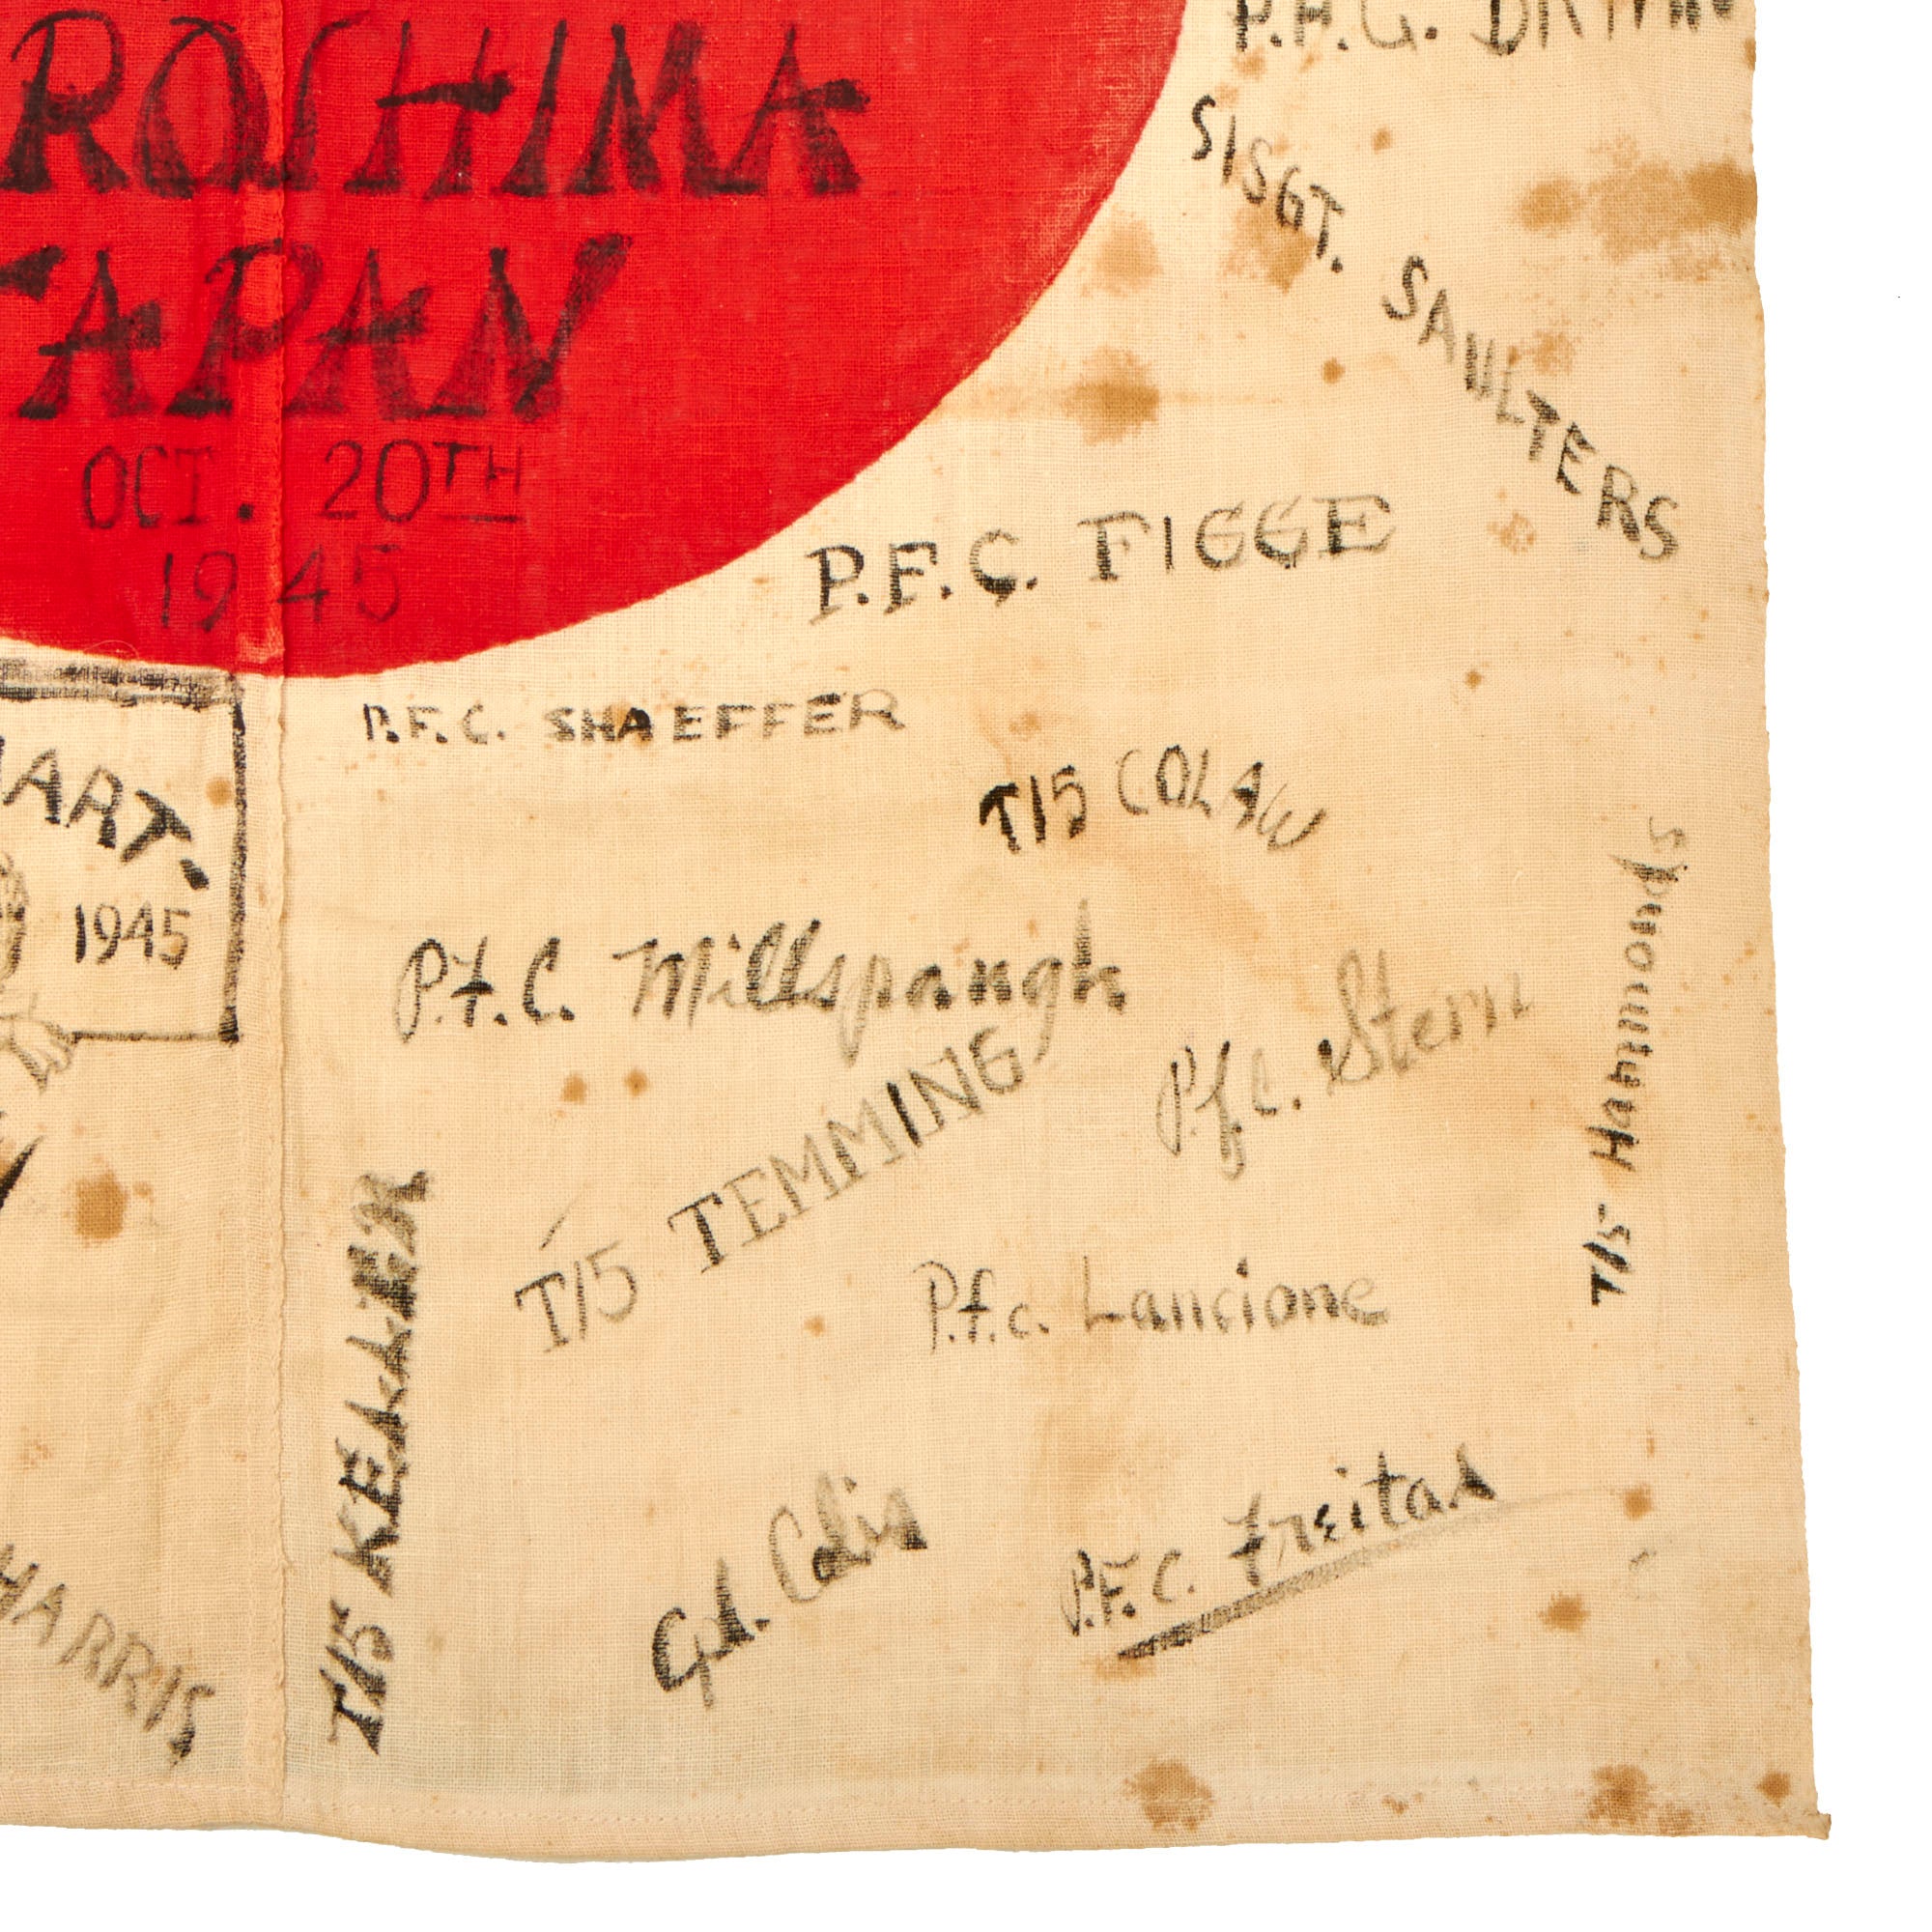 ROSHIMA
JAPAN
OCT. 20TH
1945
S/SGT. SAULTERS
P.F.C. FIGGE
P.F.C. SHAEFFER
T/5 COLAW
ART.
1945
P.f.C. Millspaugh
P.f.c. Stern
T/5 Hammonds
T/5 TEMMING
P.f.c. Lancione
T/5 KELLER
Cpl. Colis
P.F.C. Freitas
HARRIS